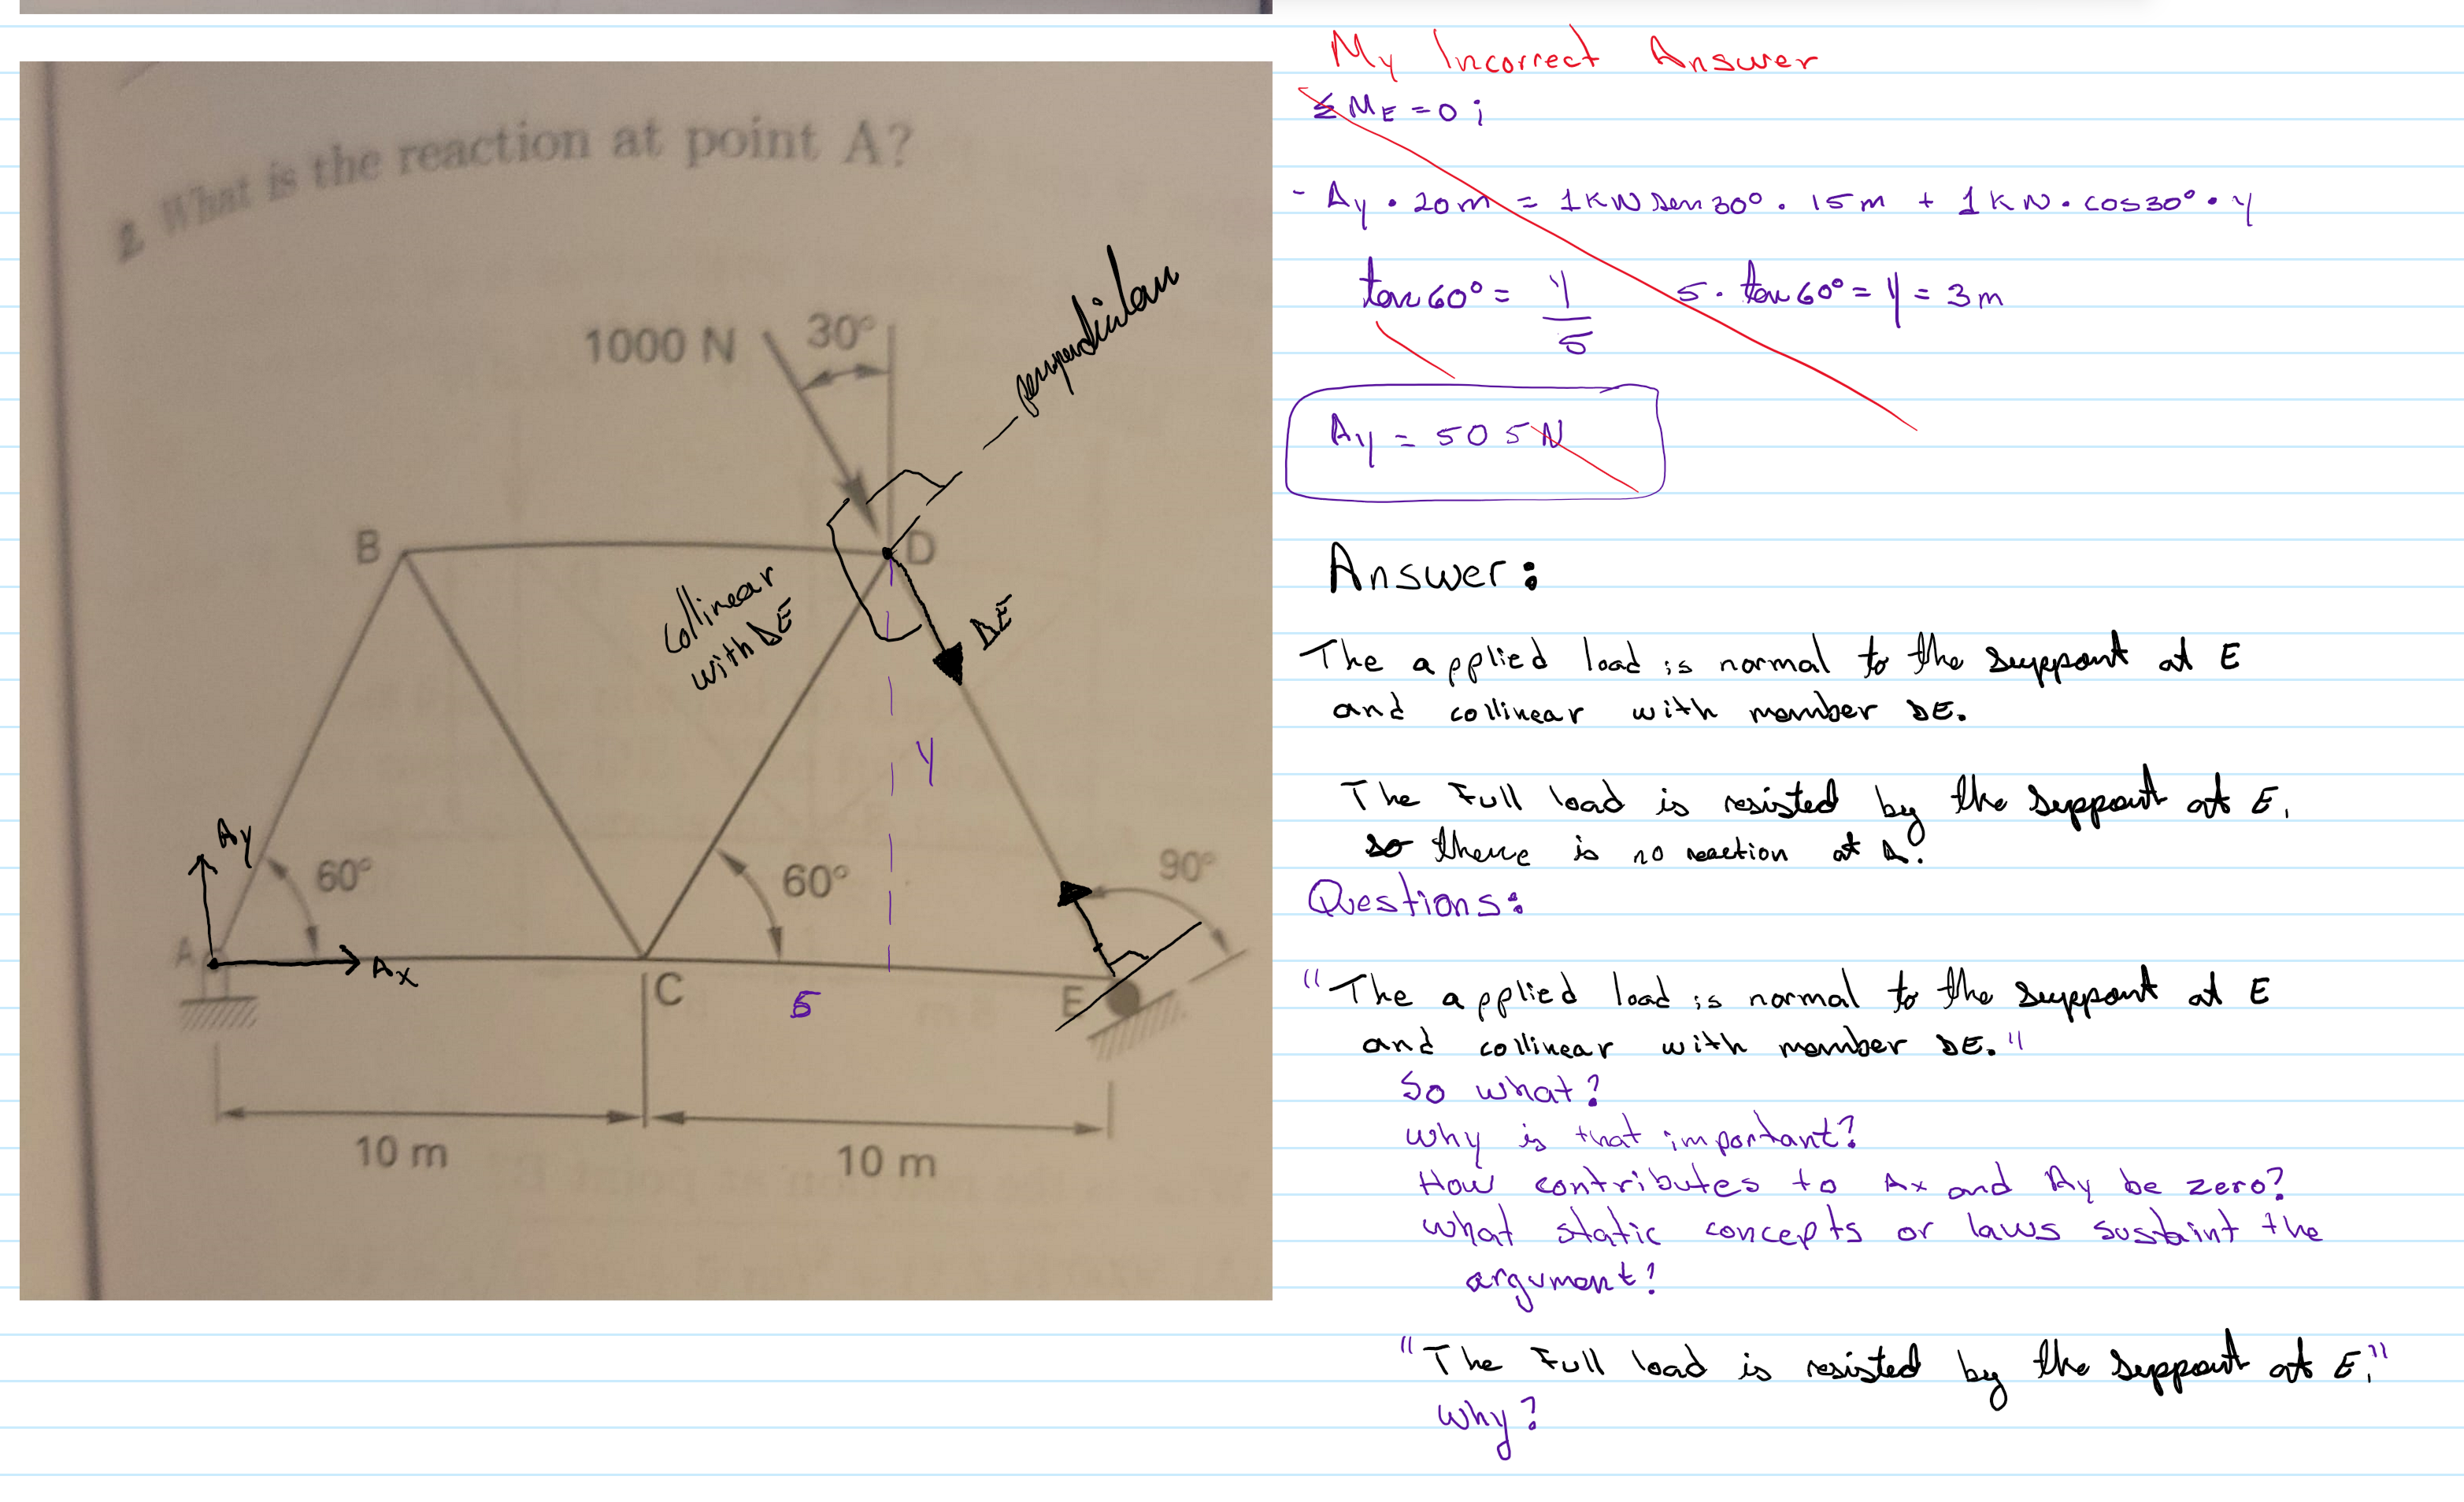 2. What is the reaction at point A?
1000 N
30°
perpendicular
B
D
collinear
with DE
DE
y
Ay
60°
60°
90°
A
Ax
C
5
E
10 m
10 m
My Incorrect Answer
ΣME = 0 ;
- Ay • 20m = 1KN sen 30° • 15m + 1KN • cos30° • y
tan 60° = y/5    5 • tan 60° = y = 3m
Ay = 505N
Answer:
The applied load is normal to the support at E
and collinear with member DE.
The Full load is resisted by the support at E,
so there is no reaction at A.
Questions:
"The applied load is normal to the support at E
and collinear with member DE."
So what?
why is that important?
How contributes to Ax and Ay be zero?
what static concepts or laws sustaint the
argument?
"The Full load is resisted by the support at E,"
Why?